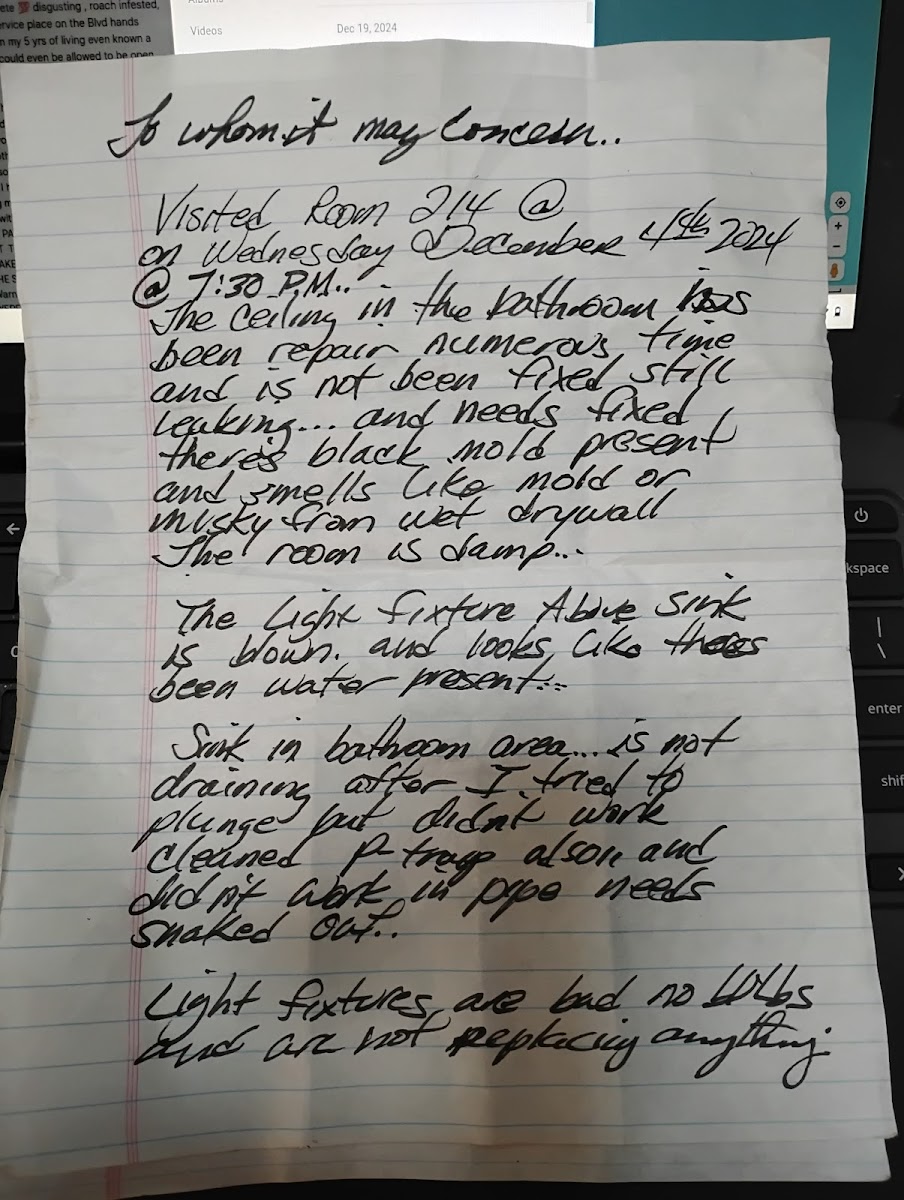 ete 💯 disgusting , roach infested,
rvice place on the Blvd hands
n my 5 yrs of living even known a
could even be allowed to be open
Videos Dec 19, 2024
To whom it may Concern..
Visited Room 214 @
on Wednesday December 4th 2024
@ 7:30 P.M..
The ceiling in the bathroom has
been repair numerous time
and is not been fixed still
leaking... and needs fixed
there's black mold present
and smells like mold or
misky from wet drywall
The room is damp...
The Light fixture Above Sink
is blown. and looks like theres
been water present...
Sink in bathoom area... is not
draining after I tried to
plunge but didn't work
Cleaned P-trap also,, and
didn't work in pipe needs
snaked out..
Light fixtures are bad no bulbs
and are not Replacing anything
kspace
enter
shif